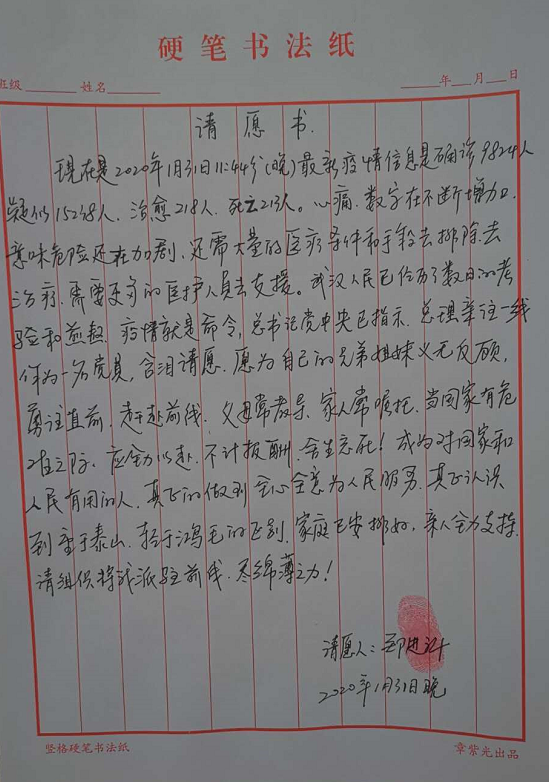 硬笔书法纸
班级 姓名 年 月 日
请愿书.
现在是2020年1月31日11:44分(晚)最新疫情信息是确诊9824人
疑似15238人、治愈218人、死亡213人。心痛.数字在不断增加.
意味危险还在加剧、还需大量的医疗条件和手段去排除.去
治疗.需要更多的医护人员去支援。武汉人民已经历了数日的考
验和煎熬.疫情就是命令,总书记党中央已指示.总理亲往一线
作为一名党员,含泪请愿.愿为自己的兄弟姐妹义无反顾,
勇往直前.赶赴前线.父母常教导、家人常嘱托.当国家有危
难之际.应全力以赴.不计报酬.舍生忘死!成为对国家和
人民有用的人.真正的做到全心全意为人民服务.真正认识
到重于泰山.轻于鸿毛的区别.家庭已安排好,亲人全力支持.
请组织将我派驻前线.尽绵薄之力!
请愿人:
2020年1月31日晚
竖格硬笔书法纸 章紫光出品